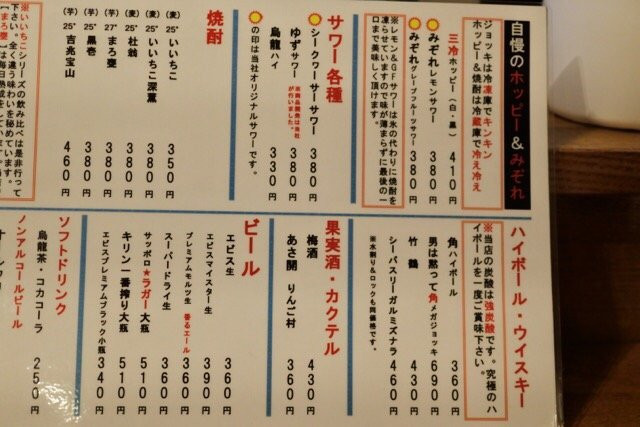 自慢のホッピー&みぞれ
ジョッキは冷凍庫でキンキン
ホッピー&焼酎は冷蔵庫で冷え冷え
三冷ホッピー(白・黒) 410円
みぞれレモンサワー 380円
みぞれグレープフルーツサワー 380円
※レモン&GFサワーは氷の代わりに焼酎を
凍らせていますので味が薄まらずに最後の一
口まで美味しく頂けます。
サワー各種
シークヮーサーサワー 380円
ゆずサワー 380円
本商品開発は当社
が行いました。
烏龍ハイ 330円
の印は当社オリジナルサワーです。
焼酎
(麦)25° いいちこ 350円
(麦)25° いいちこ深薫 380円
(麦)25° 杜翁 380円
(芋)27° まろ甕 380円
(芋)25° 黒壱 380円
(芋)25° 吉兆宝山 460円
※いいちこシリーズの飲み比べは是非行って
下さい。全く違う味わいを秘めています。
ハイボール・ウイスキー
※当店の炭酸は強炭酸です。究極のハ
イボールを一度ご賞味下さい。
角ハイボール 360円
男は黙って角メガジョッキ 690円
竹鶴 430円
シーバスリーガルミズナラ 460円
※水割り&ロックも同価格です。
果実酒・カクテル
梅酒 430円
あさ開 りんご村 360円
ビール
エビス生 360円
エビスマイスター生 390円
プレミアムモルツ生 香るエール 360円
スーパードライ生 360円
サッポロ★ラガー大瓶 510円
キリン一番搾り大瓶 510円
エビスプレミアムブラック小瓶 340円
ソフトドリンク
烏龍茶・コカコーラ 250円
ノンアルコールビール